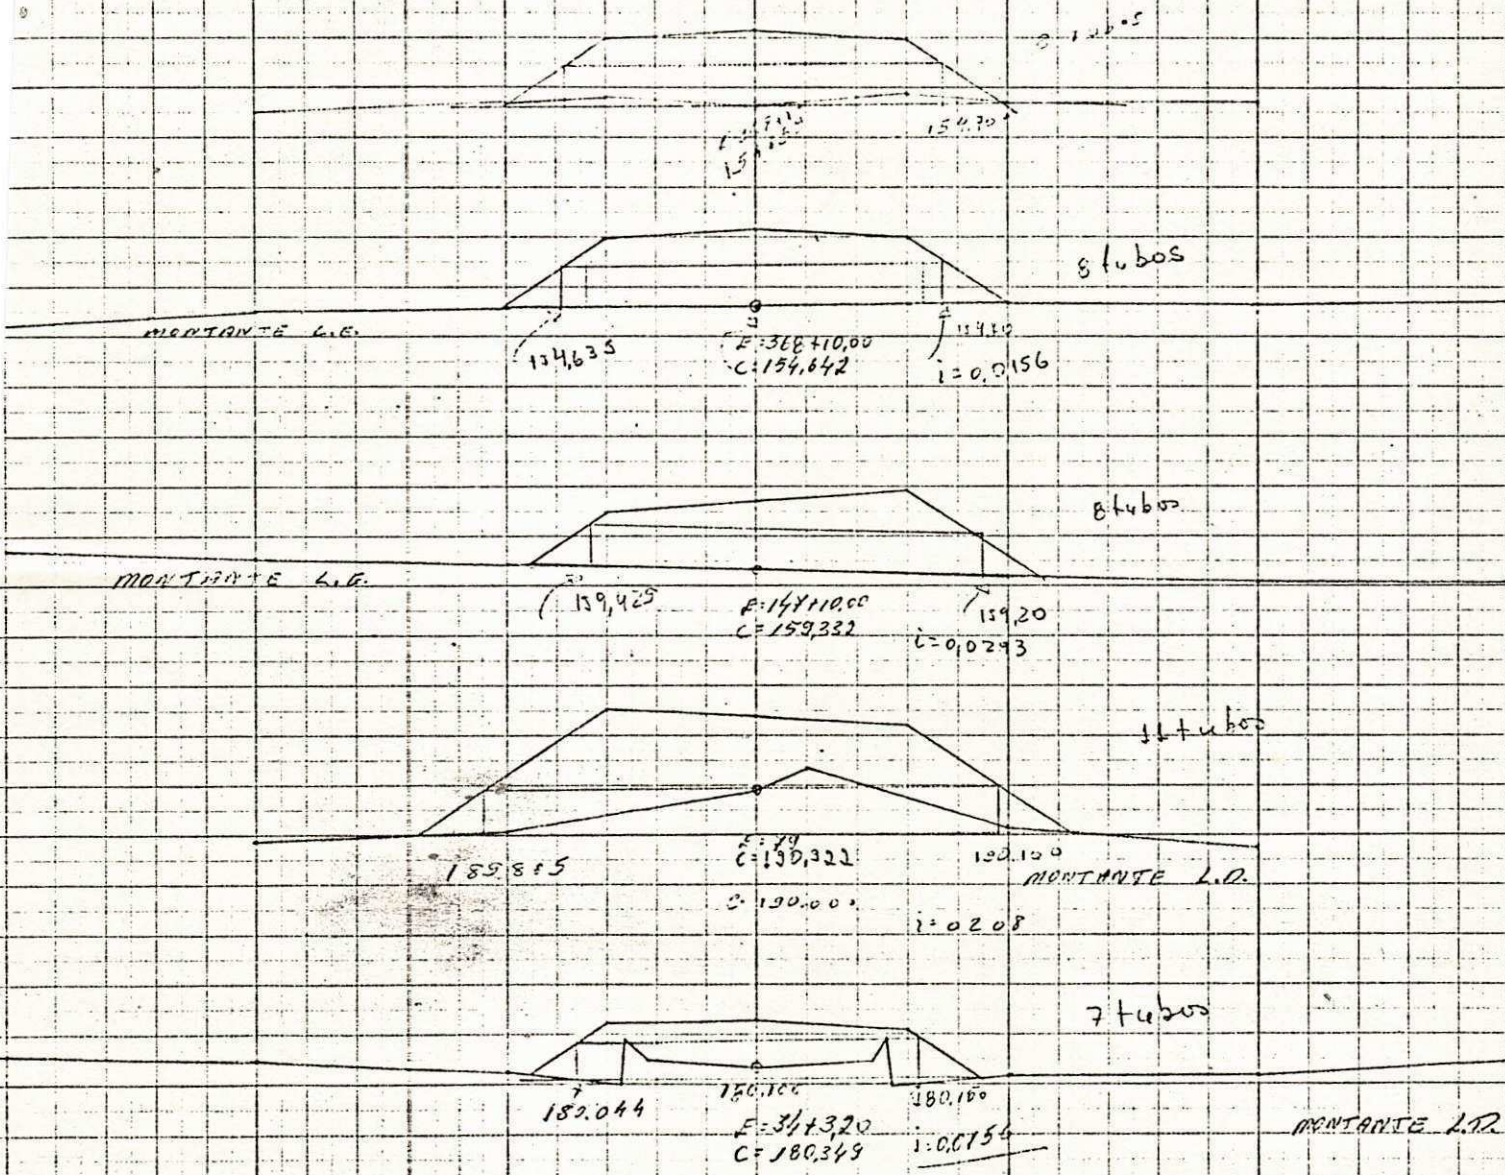 8 tubos
154.70
8 tubos
MONTANTE L.E.
154,635
E=368+10,00
C=154,642
i=0,0156
8 tubos
MONTANTE L.E.
159,425
E=147+10,00
C=159,332
159,20
i=0,0293
11 tubos
C=190,322
190.100
MONTANTE L.D.
i=0208
7 tubos
180,100
E=34+3,20
C=180,349
i=0,0154
MONTANTE L.D.